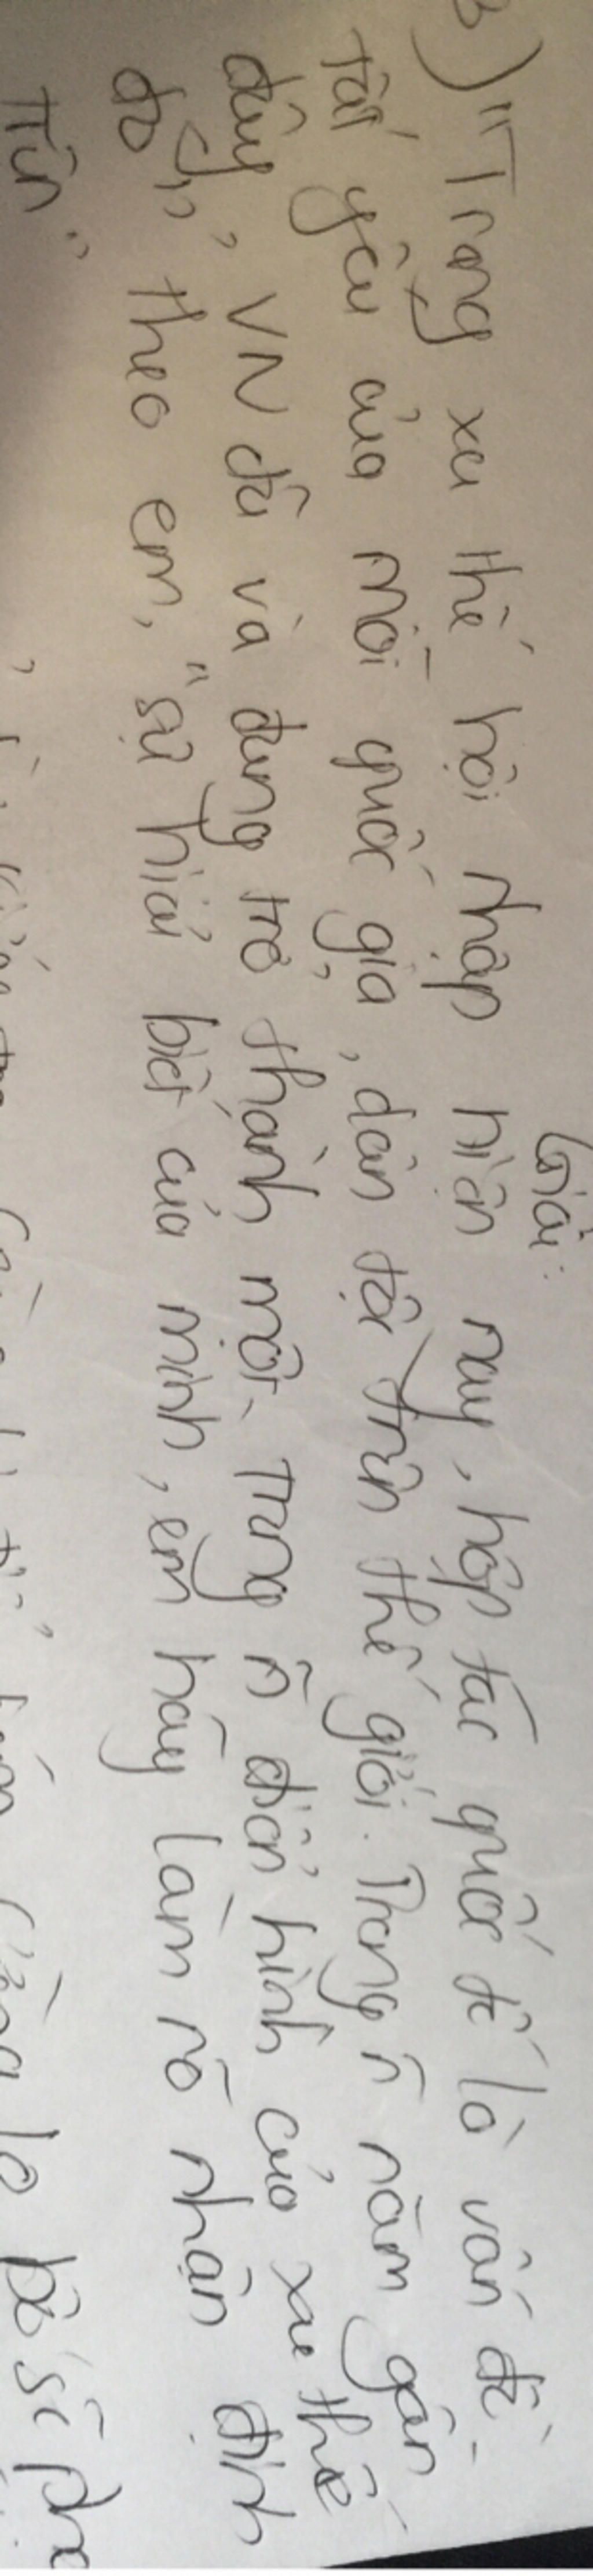 Giải:
3) "Trong xu thế hội nhập hiện nay, hợp tác quốc tế là vấn đề
tất yếu của mỗi quốc gia, dân tộc trên thế giới. Trong ~ năm gần
đây, VN đã và đang trở thành một trong ~ điển hình của xu thế
đó", theo em, "sự hiểu biết của mình, em hãy làm rõ nhận định
trên"